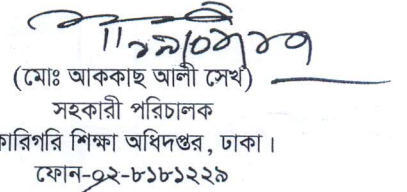 (মোঃ আককাছ আলী সেখ)
সহকারী পরিচালক
কারিগরি শিক্ষা অধিদপ্তর, ঢাকা।
ফোন-০২-৮১৮১২২৯